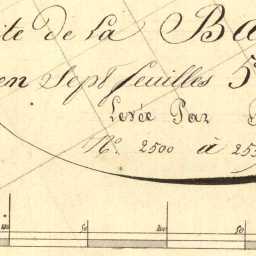 ite de la Ba
en Sept feuilles 5
Levée Par
N.º 2500 à 25
50 200 50